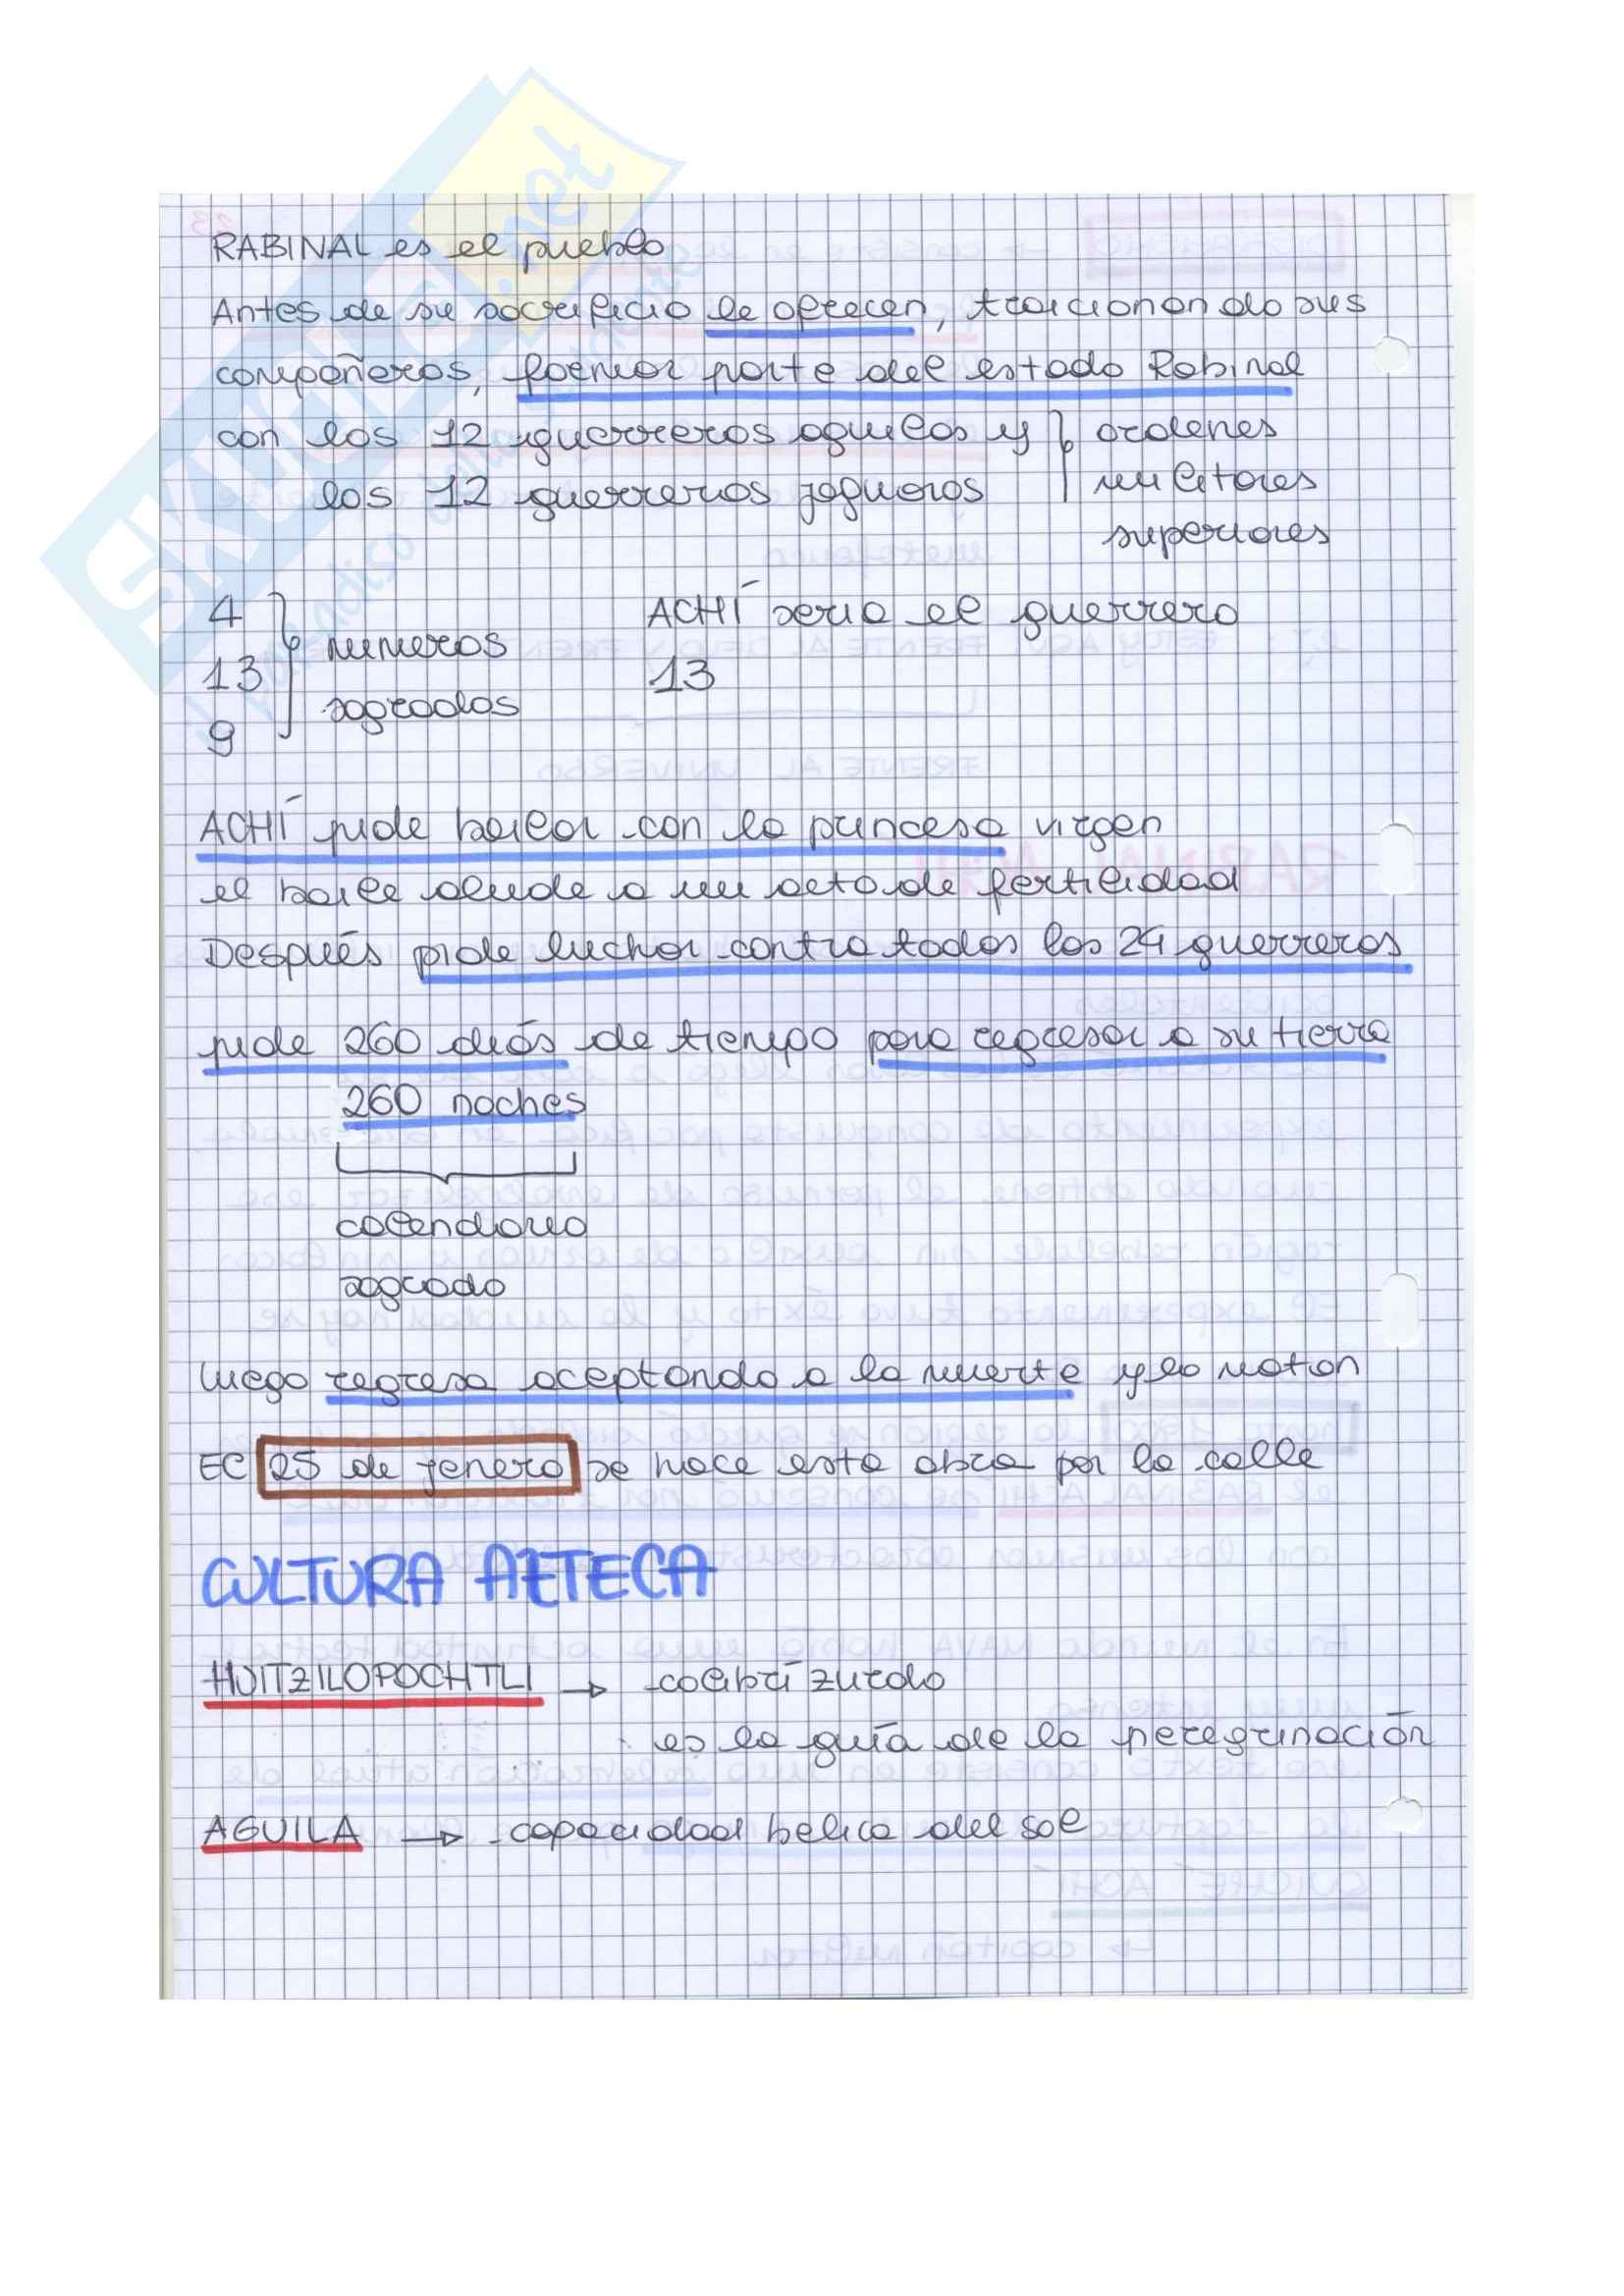 RABINAL es el pueblo
Antes de su sacrificio le ofrecen, traicionando sus
compañeros, formar parte del estado Rabinal
con los 12 guerreros aguilas y } ordenes
los 12 guerreros jaguaros militares
superiores
4 ACHÍ seria el guerrero
numeros
13 13
sagrados
9
ACHÍ pide bailar con la princesa virgen
el baile alude a un acto de fertilidad
Después pide luchar contra todos los 24 guerreros
pide 260 días de tiempo para regresar a su tierra
260 noches
calendario
sagrado
Luego regresa aceptando a la muerte y lo matan
El 25 de jenero se hace esta obra por la calle
CULTURA AZTECA
HUITZILOPOCHTLI → colibrí zurdo
es la guía de la peregrinación
AGUILA → capacidad belica del sol
SKUOLA.net